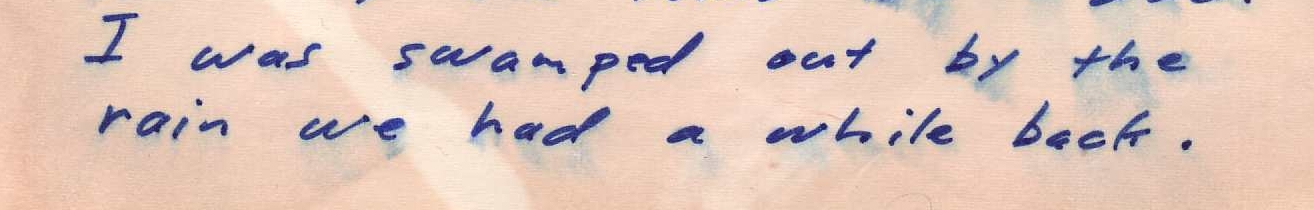 I was swamped out by the
rain we had a while back.